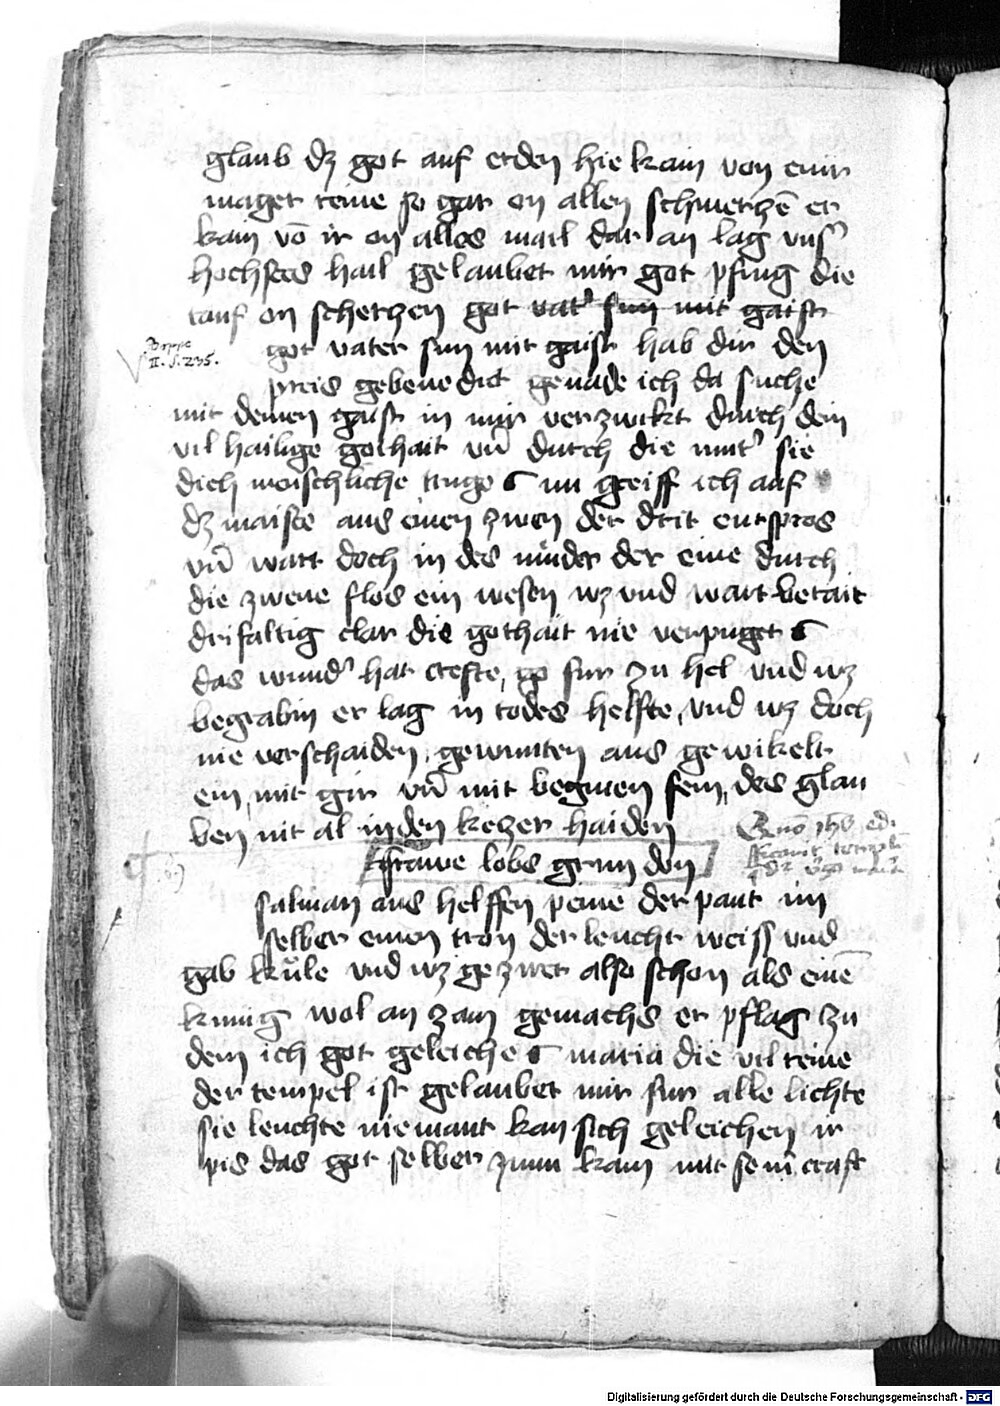 glaub dz got auf erden hie kam von einir
maget reine so gar on allen schmerhzē er
kam vō ir on alles mail dar an lag vnsˀ
hochstes hail gelaubet mir got pfing die
tauf on scherhzen got vatˀ sun mit gaist
Boppe
II. S. 235.
got vater sun mit gaist hab dir den
preis gebenedict genade ich da suche
mit deinen gaist in mir verzwikt durch dein
vil hailige gothait vn̄ durch die mutˀ sie
dich menschliche truge nu greiff ich auf
dz maiste aus einen zwen der drit entspros
vn̄ wart doch in des minder der eine durch
die zwene flos ein wesen wz vnd wart betait
drifaltig clar die gothait nie verpuget
das wundˀ hat crefte, go fur zu hel vnd wz
begrabin er lag in todes helfte, vnd wz doch
nie verschaiden, gewunten aus gewikelt
ein, mit gir vn̄ mit beginen sein, des glau
ben nit al in den keczer haiden
frawe lobs grun don
salman aus helffen peine der paut im
selber einen tron der leucht weiss vnd
gab kule vnd wz geziret also schon als einē
kunig wol an zam gemachs er pflag zu
dem ich got geleiche maria die vil reine
der tempel ist gelaubet mir fur alle lichte
sie leuchte niemant kan sich geleichen ir
pis das got selber zum kam mit seinē craft
Digitalisierung gefördert durch die Deutsche Forschungsgemeinschaft - DFG